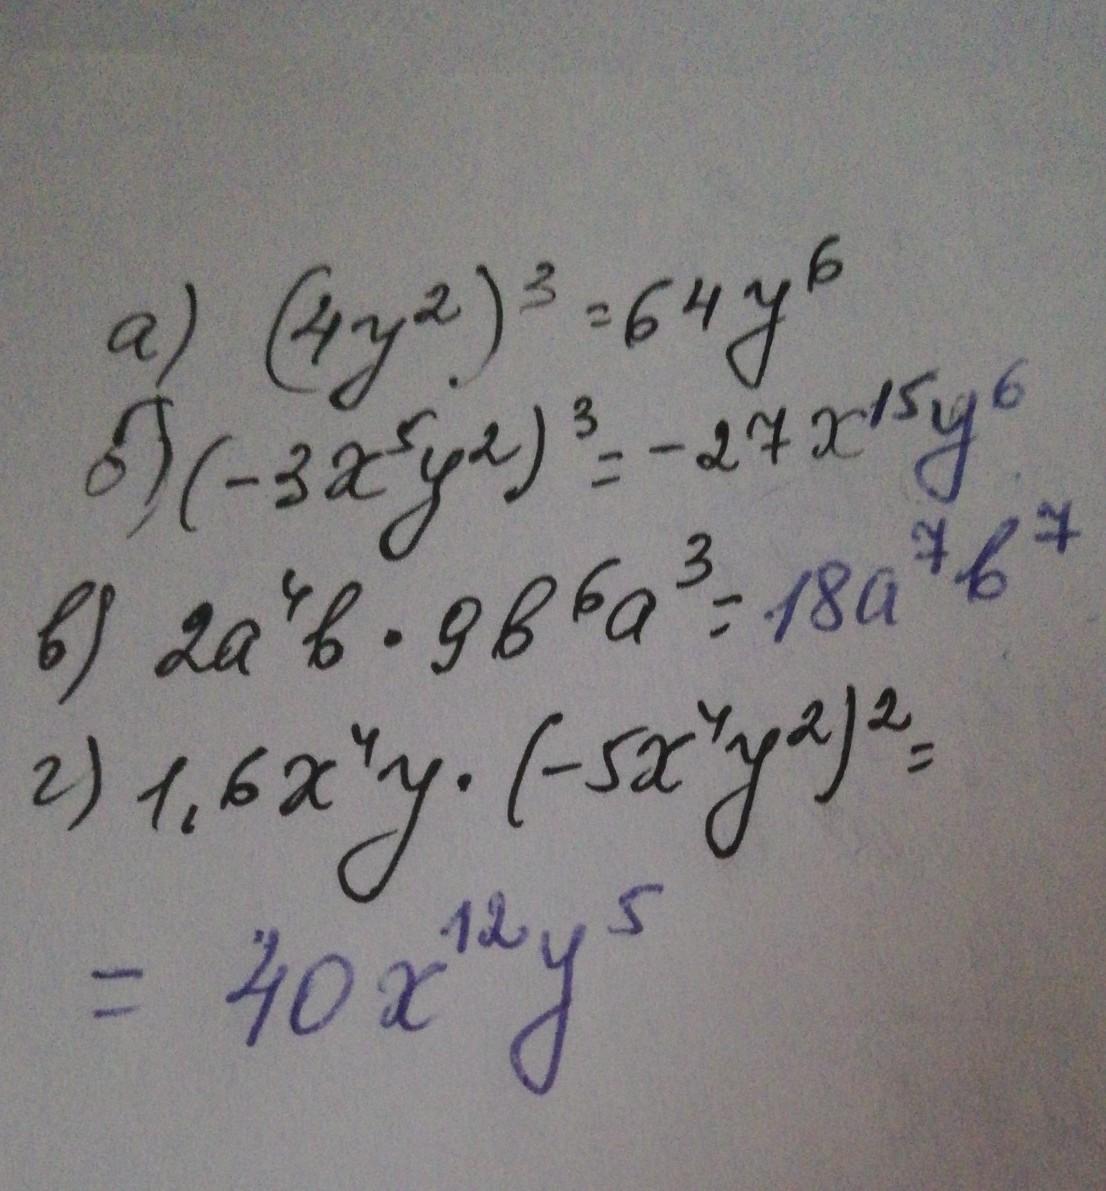 а) (4y²)³ = 64y⁶
б) (-3x⁵y²)³ = -27x¹⁵y⁶
в) 2a⁴b · 9b⁶a³ = 18a⁷b⁷
г) 1,6x⁴y · (-5x⁴y²)² =
= 40x¹²y⁵